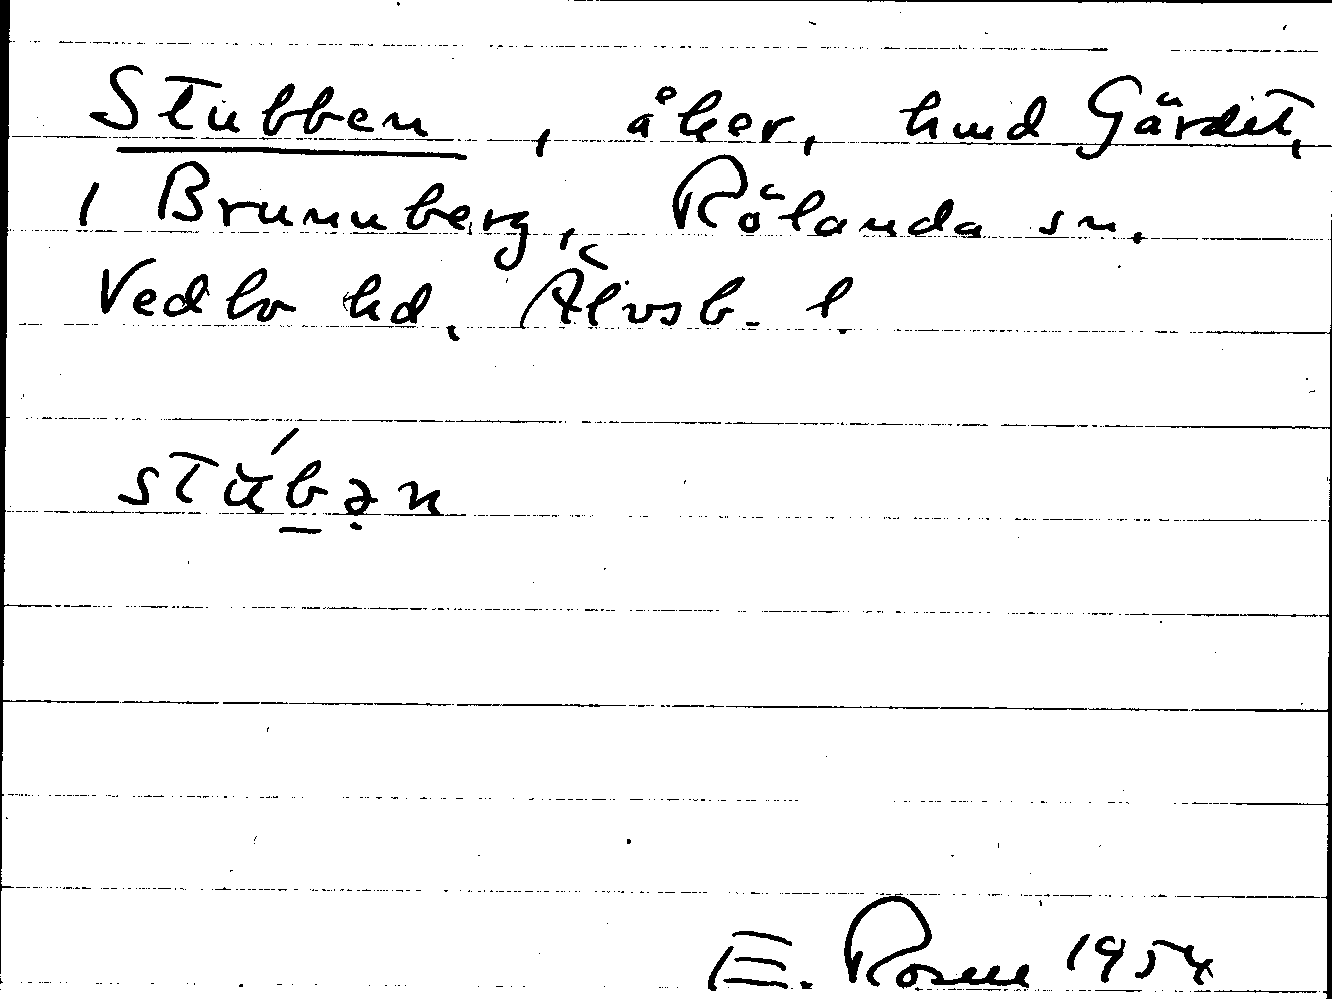 Stubben, åker, hmd Gärdet,
i Brunnberg, Rölanda sn.
Vedbo hd. Älvsb. l.
stúbən
E. Rosell 1954